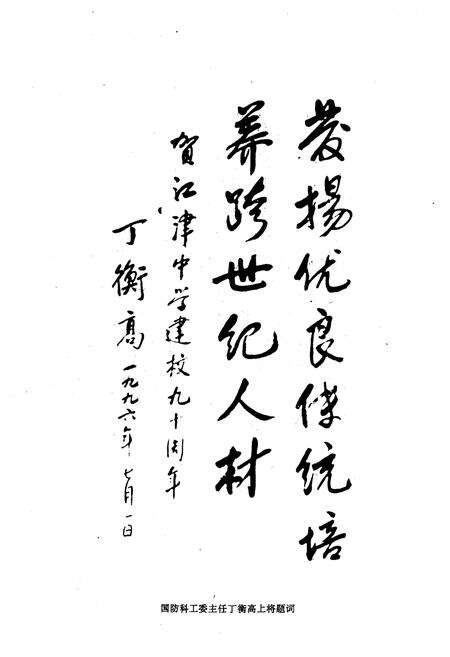 發揚优良传统培
养跨世纪人材
贺江津中学建校九十周年
丁衡高 一九九六年七月一日
国防科工委主任丁衡高上将题词